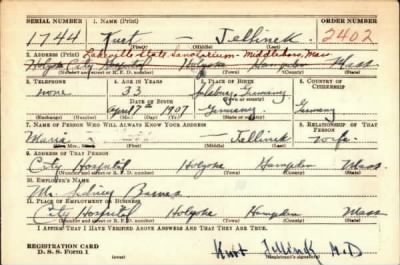 SERIAL NUMBER 1. NAME (Print) ORDER NUMBER
1744 Kurt — Jellinck 2402
(First) (Middle) (Last)
2. ADDRESS (Print) Lakeville State Sanatorium - Middleboro, Mass
Holyoke City Hospital Holyoke Hampden Mass
(Number and street or R. F. D. number) (Town) (County) (State)
3. TELEPHONE 4. AGE IN YEARS 5. PLACE OF BIRTH 6. COUNTRY OF CITIZENSHIP
none 33 Germany
DATE OF BIRTH (Town or county)
17th 1907 Germany Germany
(Mo.) (Day) (Yr.) (State or country)
7. NAME OF PERSON WHO WILL ALWAYS KNOW YOUR ADDRESS 8. RELATIONSHIP OF THAT PERSON
Maria — Jellinck wife
(Mr., Mrs., Miss) (First) (Middle) (Last)
9. ADDRESS OF THAT PERSON
City Hospital Holyoke Hampden Mass
(Number and street or R. F. D. number) (Town) (County) (State)
10. EMPLOYER'S NAME
Mr. Sidney Barnes
11. PLACE OF EMPLOYMENT OR BUSINESS
City Hospital Holyoke Hampden Mass
(Number and street or R. F. D. number) (Town) (County) (State)
I AFFIRM THAT I HAVE VERIFIED ABOVE ANSWERS AND THAT THEY ARE TRUE.
REGISTRATION CARD
D. S. S. Form 1
Kurt Jellinck M.D
(Registrant's signature)